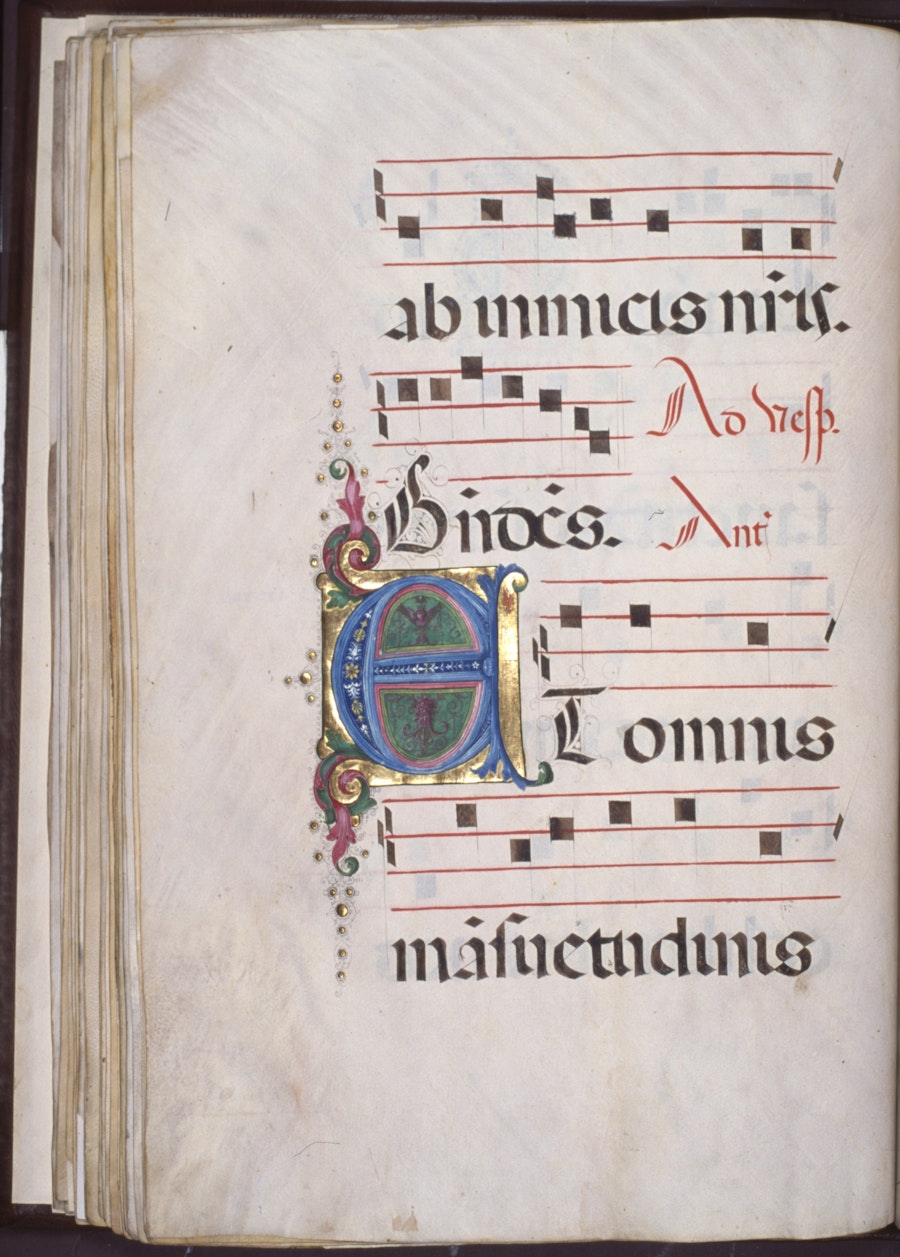 ab inimicis nr̃is.
Ad vesp.
Bñdc̃s. Ant̃
ET omnis
mãsuetudinis